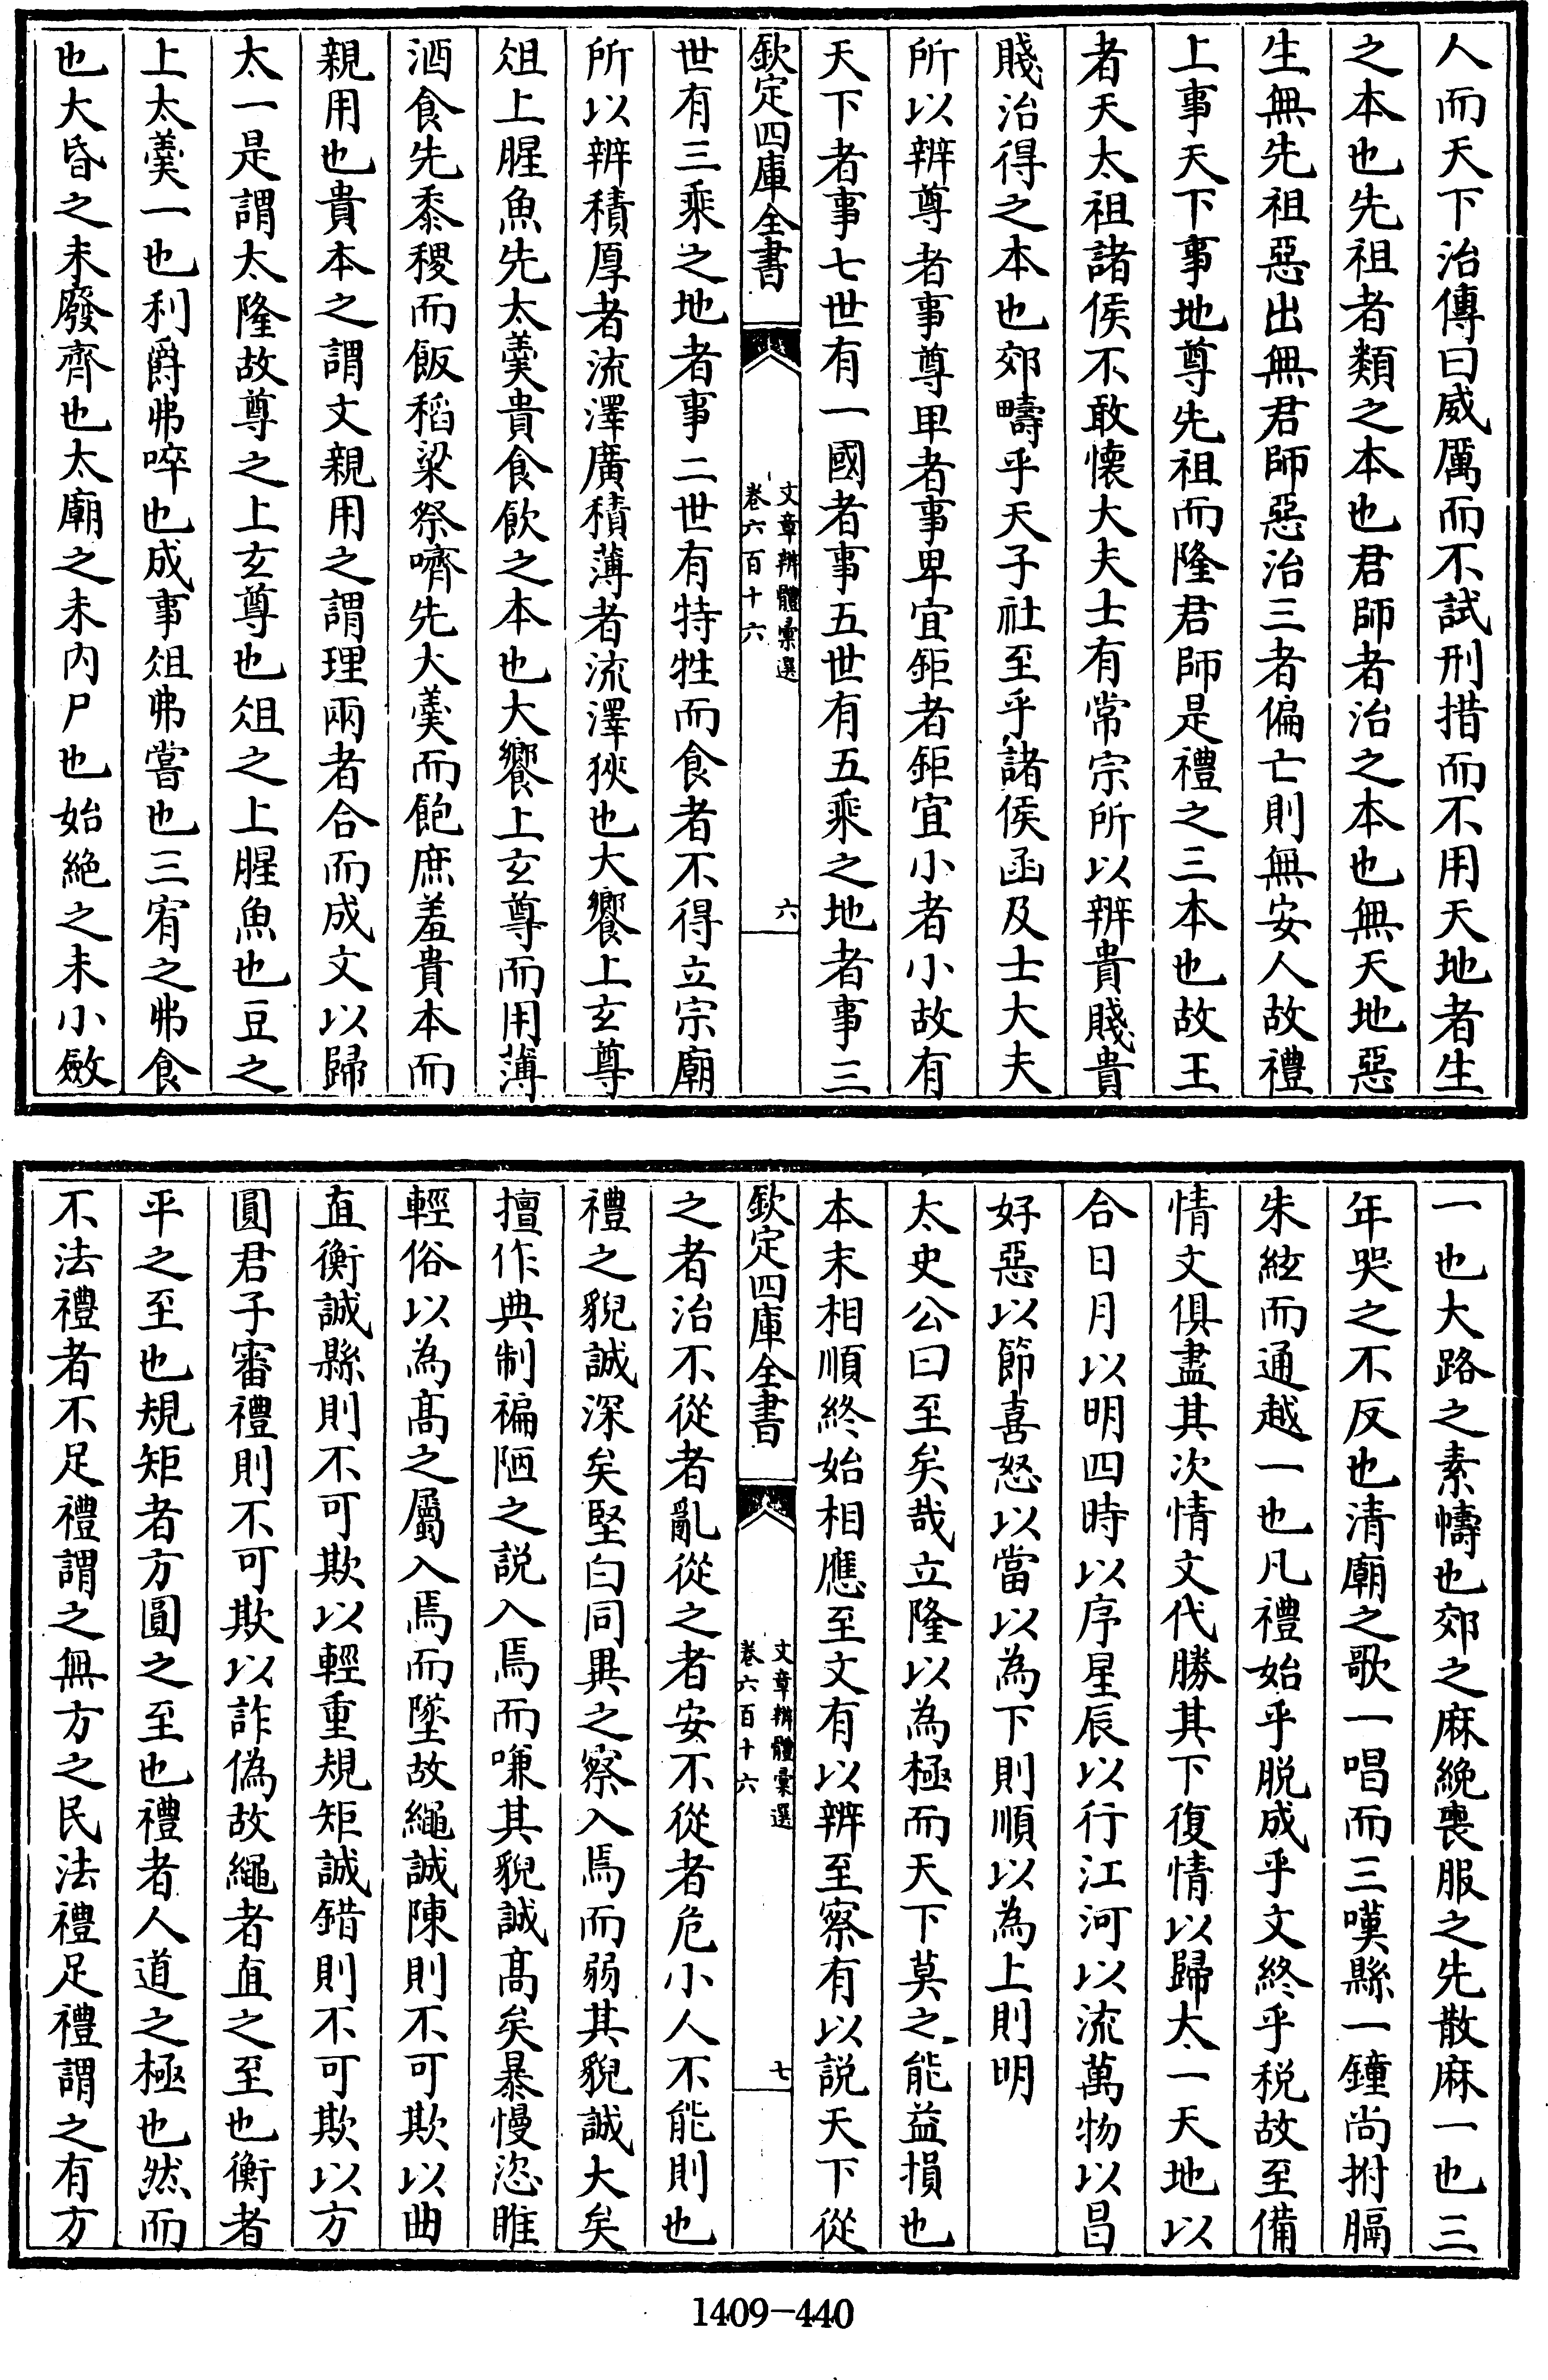 人而天下治傳曰威厲而不試刑措而不用天地者生
之本也先祖者類之本也君師者治之本也無天地惡
生無先祖惡出無君師惡治三者偏亡則無安人故禮
上事天下事地尊先祖而隆君師是禮之三本也故王
者天太祖諸侯不敢懷大夫士有常宗所以辨貴賤貴
賤治得之本也郊疇乎天子社至乎諸侯函及士大夫
所以辨尊者事尊卑者事卑宜鉅者鉅宜小者小故有
天下者事七世有一國者事五世有五乘之地者事三
欽定四庫全書
文章辨體彙選
卷六百十六
六
世有三乘之地者事二世有特牲而食者不得立宗廟
所以辨積厚者流澤廣積薄者流澤狹也大饗上玄尊
俎上腥魚先太羹貴食飲之本也大饗上玄尊而用薄
酒食先黍稷而飯稻粱祭嚌先大羹而飽庶羞貴本而
親用也貴本之謂文親用之謂理兩者合而成文以歸
太一是謂太隆故尊之上玄尊也俎之上腥魚也豆之
上太羹一也利爵弗啐也成事俎弗嘗也三宥之弗食
也大昏之未廢齊也太廟之未内尸也始絶之未小斂
一也大路之素幬也郊之麻絻喪服之先散麻一也三
年哭之不反也清廟之歌一唱而三嘆縣一鐘尚拊膈
朱絃而通越一也凡禮始乎脱成乎文終乎税故至備
情文俱盡其次情文代勝其下復情以歸太一天地以
合日月以明四時以序星辰以行江河以流萬物以昌
好惡以節喜怒以當以為下則順以為上則明
太史公曰至矣哉立隆以為極而天下莫之能益損也
本末相順終始相應至文有以辨至察有以説天下從
欽定四庫全書
文章辨體彙選
卷六百十六
七
之者治不從者亂從之者安不從者危小人不能則也
禮之貌誠深矣堅白同異之察入焉而弱其貌誠大矣
擅作典制褊陋之説入焉而嗛其貌誠高矣暴慢恣睢
輕俗以為高之屬入焉而墜故繩誠陳則不可欺以曲
直衡誠縣則不可欺以輕重規矩誠錯則不可欺以方
圓君子審禮則不可欺以詐偽故繩者直之至也衡者
平之至也規矩者方圓之至也禮者人道之極也然而
不法禮者不足禮謂之無方之民法禮足禮謂之有方
1409-440